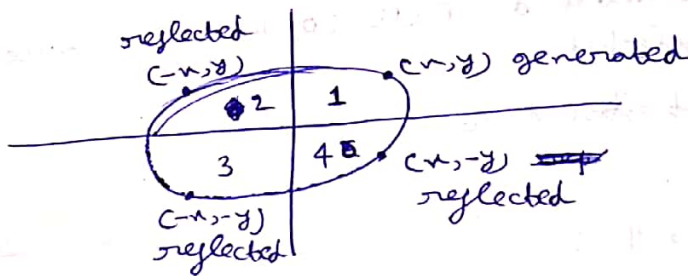 reflected
(-x,y)
(x,y) generated
2
1
3
4
(x,-y)
reflected
(-x,-y)
reflected